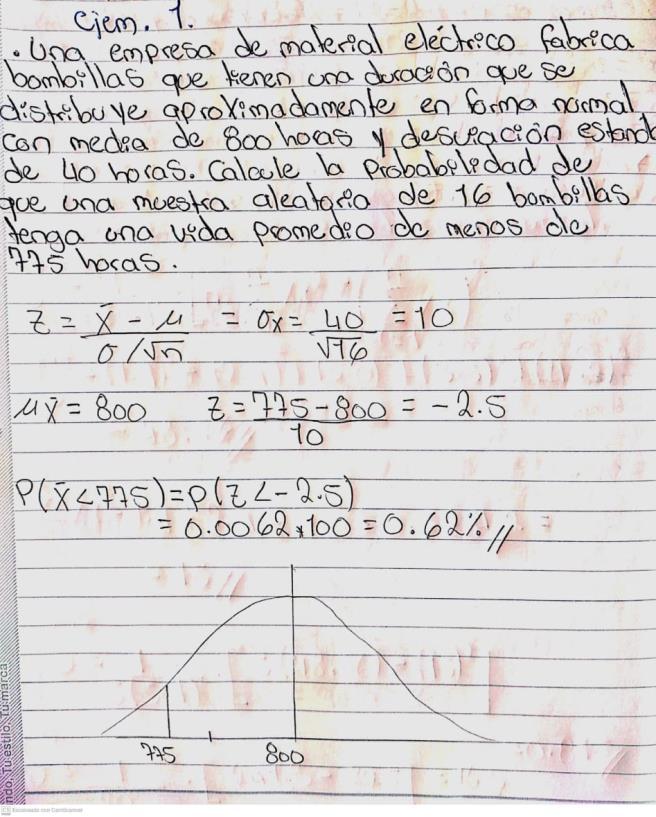 Ejem. 1.
. Una empresa de material eléctrico fabrica
bombillas que tienen una duración que se
distribuye aproximadamente en forma normal
con media de 800 horas y desviación estand
de 40 horas. Calcule la Probabilidad de
que una muestra aleatoria de 16 bombillas
tenga una vida promedio de menos de
775 horas.
Z = x̄ - μ / σ/√n = σx = 40 / √16 = 10
μx̄ = 800 Z = 775 - 800 / 10 = -2.5
P(x̄ < 775) = P(Z < -2.5)
= 0.0062 * 100 = 0.62% //
775 800
ndo. Tu estilo. Tu marca
CS Escaneado con CamScanner